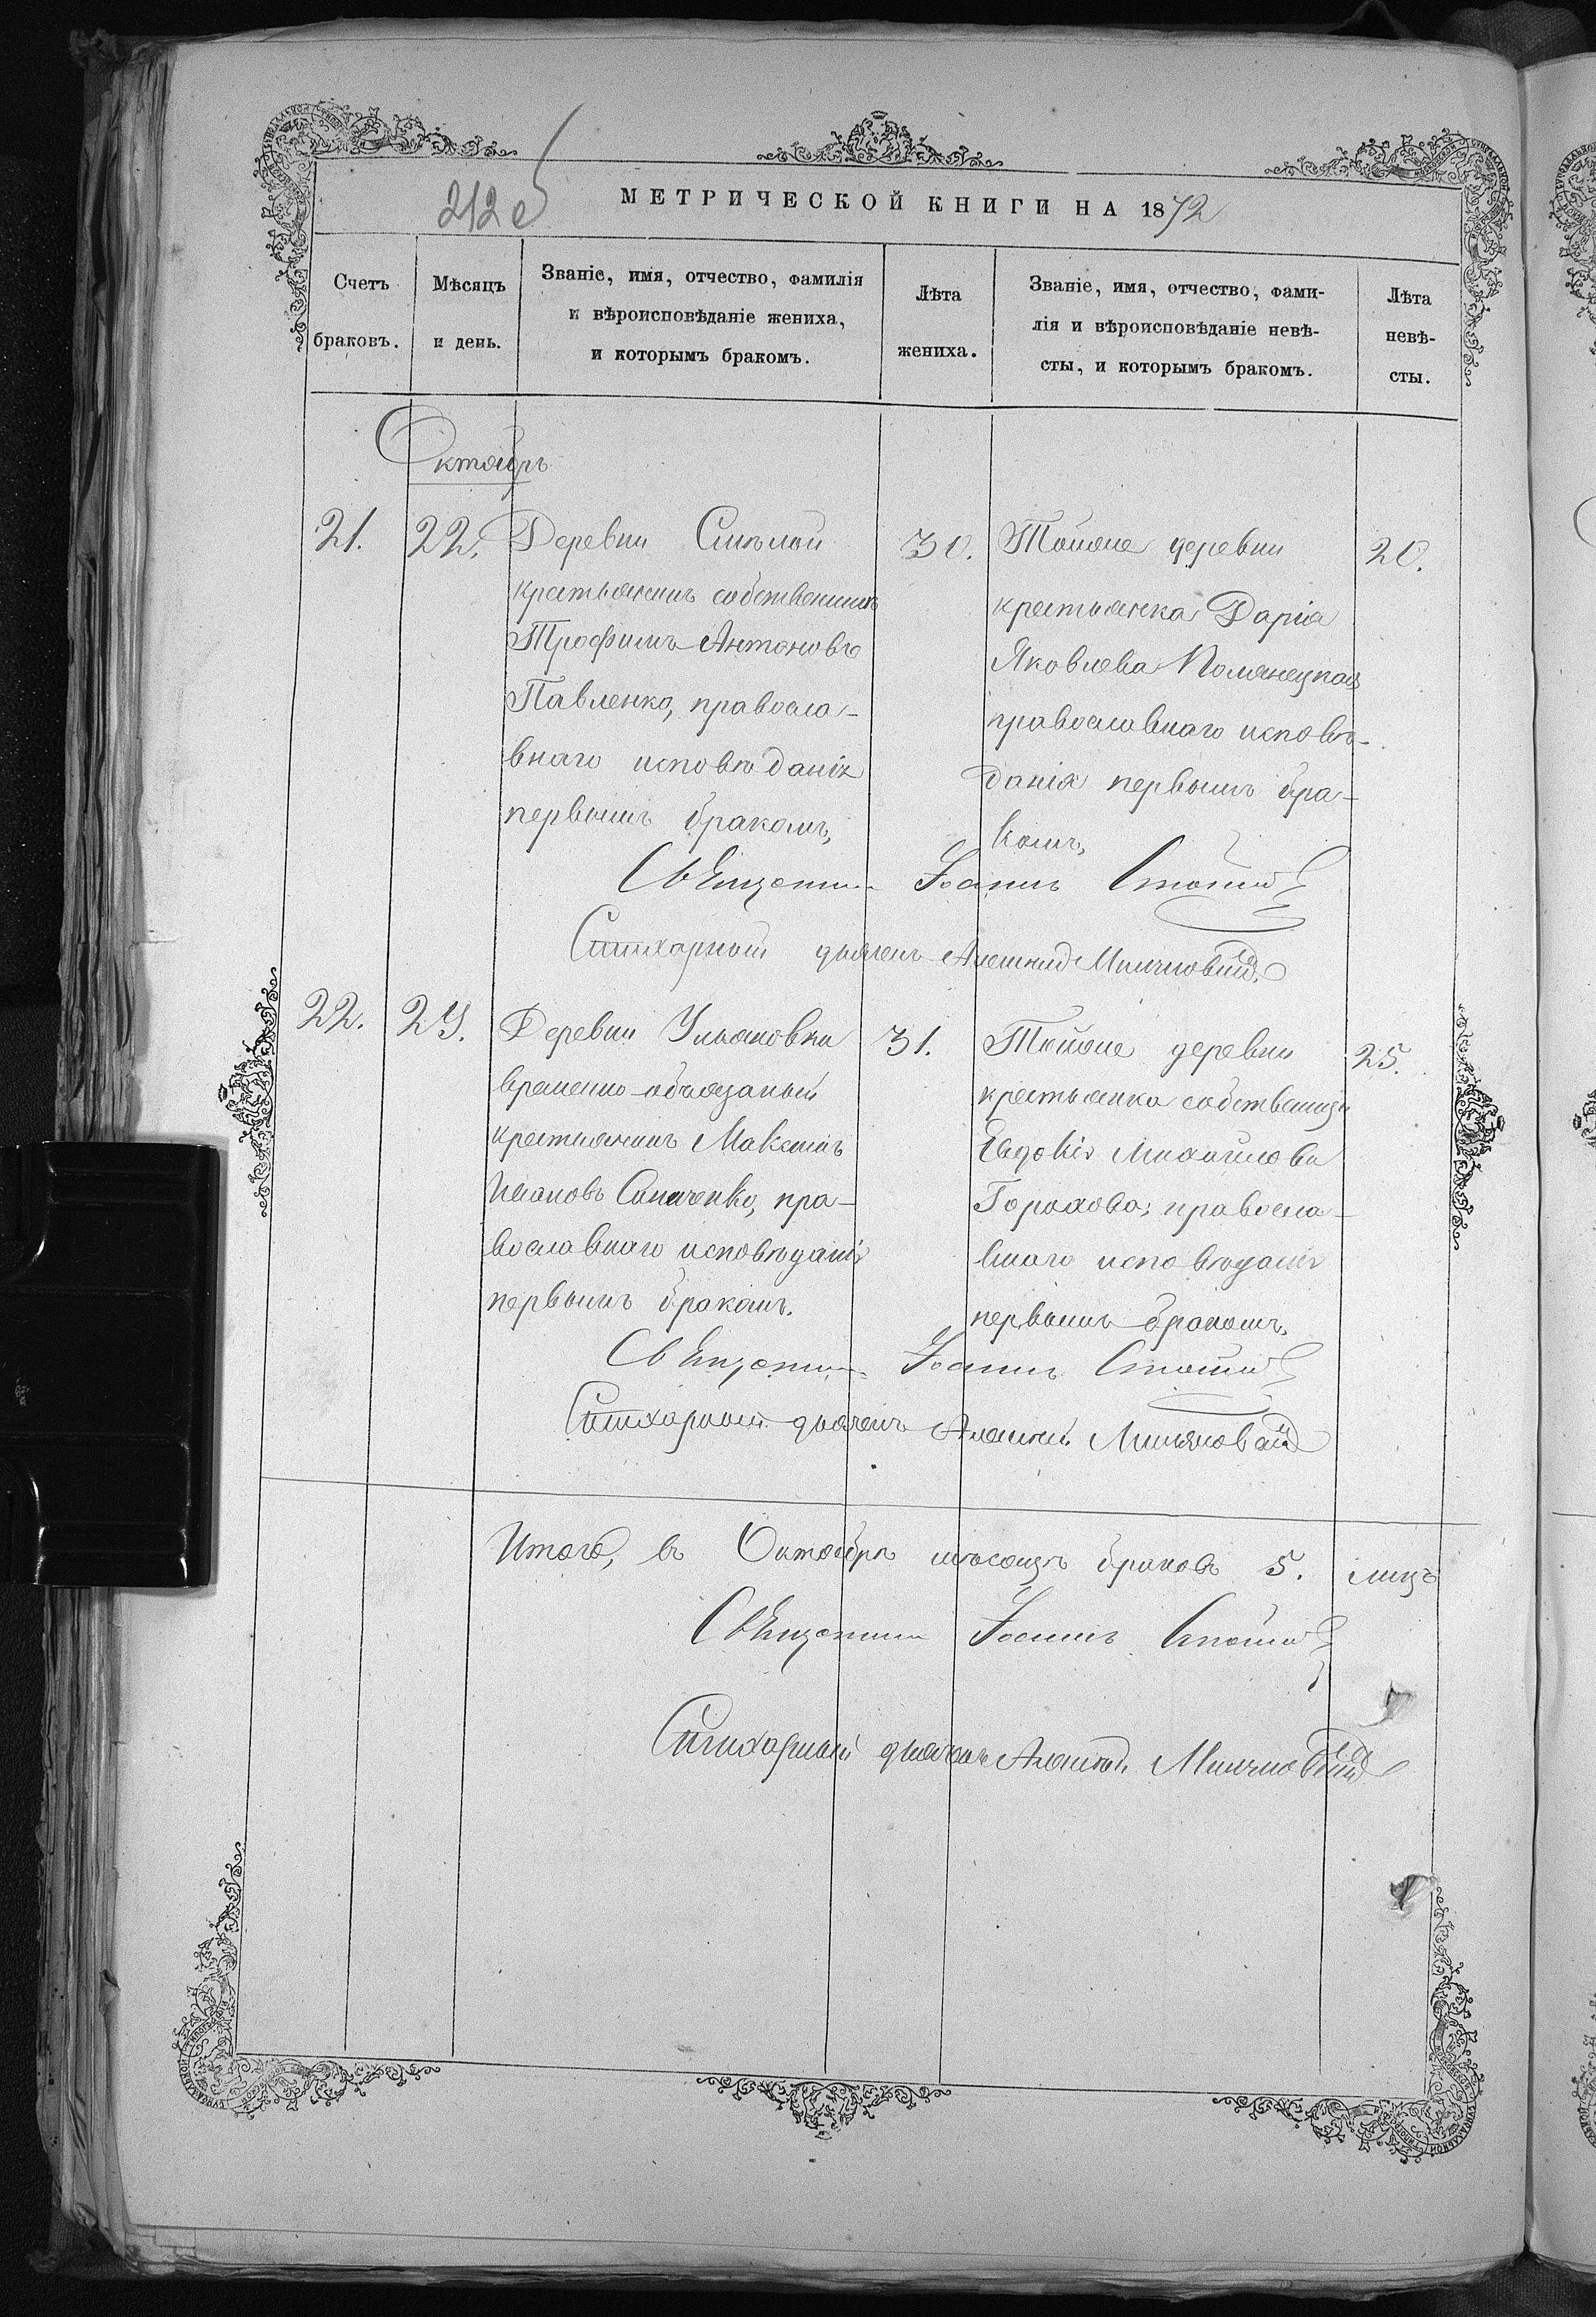 212 об
МЕТРИЧЕСКОЙ КНИГИ НА 1872
Счетъ браковъ.
Мѣсяцъ и день.
Званіе, имя, отчество, фамилія
и вѣроисповѣданіе жениха,
и которымъ бракомъ.
Лѣта жениха.
Званіе, имя, отчество, фами-
лія и вѣроисповѣданіе невѣ-
сты, и которымъ бракомъ.
Лѣта
невѣ-
сты.
Октябрь
21.
22.
Деревни Смѣлой
крестьянинъ собственникъ
Трофимъ Антоновъ
Павленко, правосла-
внаго исповѣданія
первымъ бракомъ,
30.
Тойже деревни
крестьянка Дарія
Яковлева
православнаго исповѣ-
данія первымъ бра-
комъ,
20.
Священникъ Іоаннъ
Стихарный дьячекъ Алексѣй
22.
29.
Деревни Ульяновки
временно-обязаный
крестьянинъ Максимъ
Ивановъ пра-
вославнаго исповѣданія
первымъ бракомъ.
31.
Тойже деревни
крестьянка собственница
Евдокія Михайлова
Горохова; правосла-
внаго исповѣданія
первымъ бракомъ,
25.
Священникъ Іоаннъ
Стихарный дьячекъ Алексѣй
Итого, въ Октябрѣ мѣсяцѣ браковъ 5.
Священникъ Іоаннъ
Стихарный дьячекъ Алексѣй